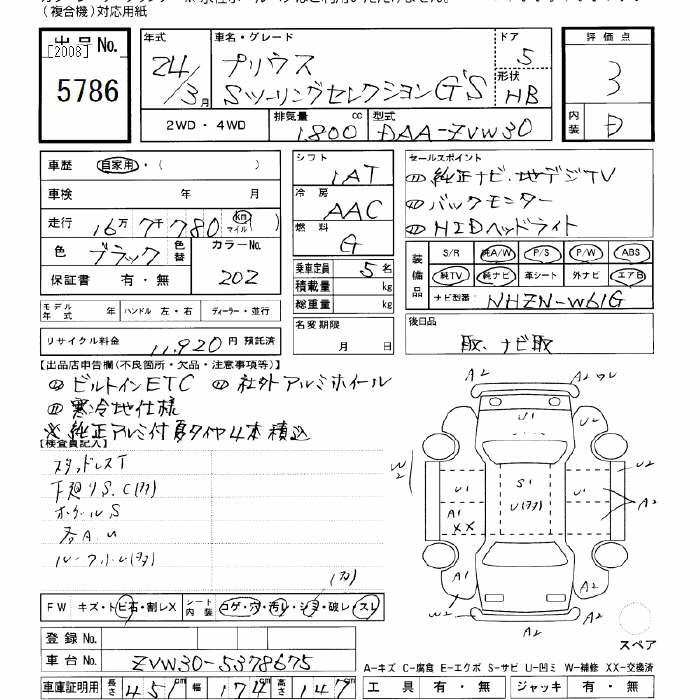 (複合機)対応用紙
出品No.
[2008]
5786
年式
24/3月
車名・グレード
プリウス
Sツーリングセレクション G'S
ドア
5
形状
HB
評価点
3
内装
D
2WD・4WD
排気量
1,800 cc
型式
DAA-ZVW30
車歴 自家用・( )
車検 年 月
走行 16万7千780 km マイル ( )
色 ブラック 色替 カラーNo. 202
保証書 有・無
シフト
IAT
冷房
AAC
燃料
G
乗車定員 5名
積載量 kg
総重量 kg
セールスポイント
純正ナビ・地デジTV
バックモニター
HIDヘッドライト
装備品
S/R 純A/W P/S P/W ABS
純TV 純ナビ 革シート 外ナビ エアB
ナビ型番 NHZN-W61G
モデル年式 年 ハンドル 左・右 ディーラー・並行
リサイクル料金 11,920 円 預託済
名変期限
月 日
後日品
取、ナビ取
【出品店申告欄(不良箇所・欠品・注意事項等)】
ビルトインETC 社外アルミホイール
寒冷地仕様
※純正アルミ付夏タイヤ4本積込
【検査員記入】
スタッドレスT
下廻りS.C(ワ)
ホイールS
各A.U
FW キズ・トビ石・割レX シート内装 コゲ・穴・汚レ・シミ・破レ・スレ
登録No.
車台No. ZVW30-5378675
車庫証明用 長さ 451cm 幅 174cm 高さ 147cm
A2
A2
U1
W2
U2
U1
S1
U1
A2
A1
XX
A1
A1
W2
A2
スペア
A-キズ C-腐食 E-エクボ S-サビ U-凹ミ W-補修 XX-交換済
工具 有・無 ジャッキ 有・無